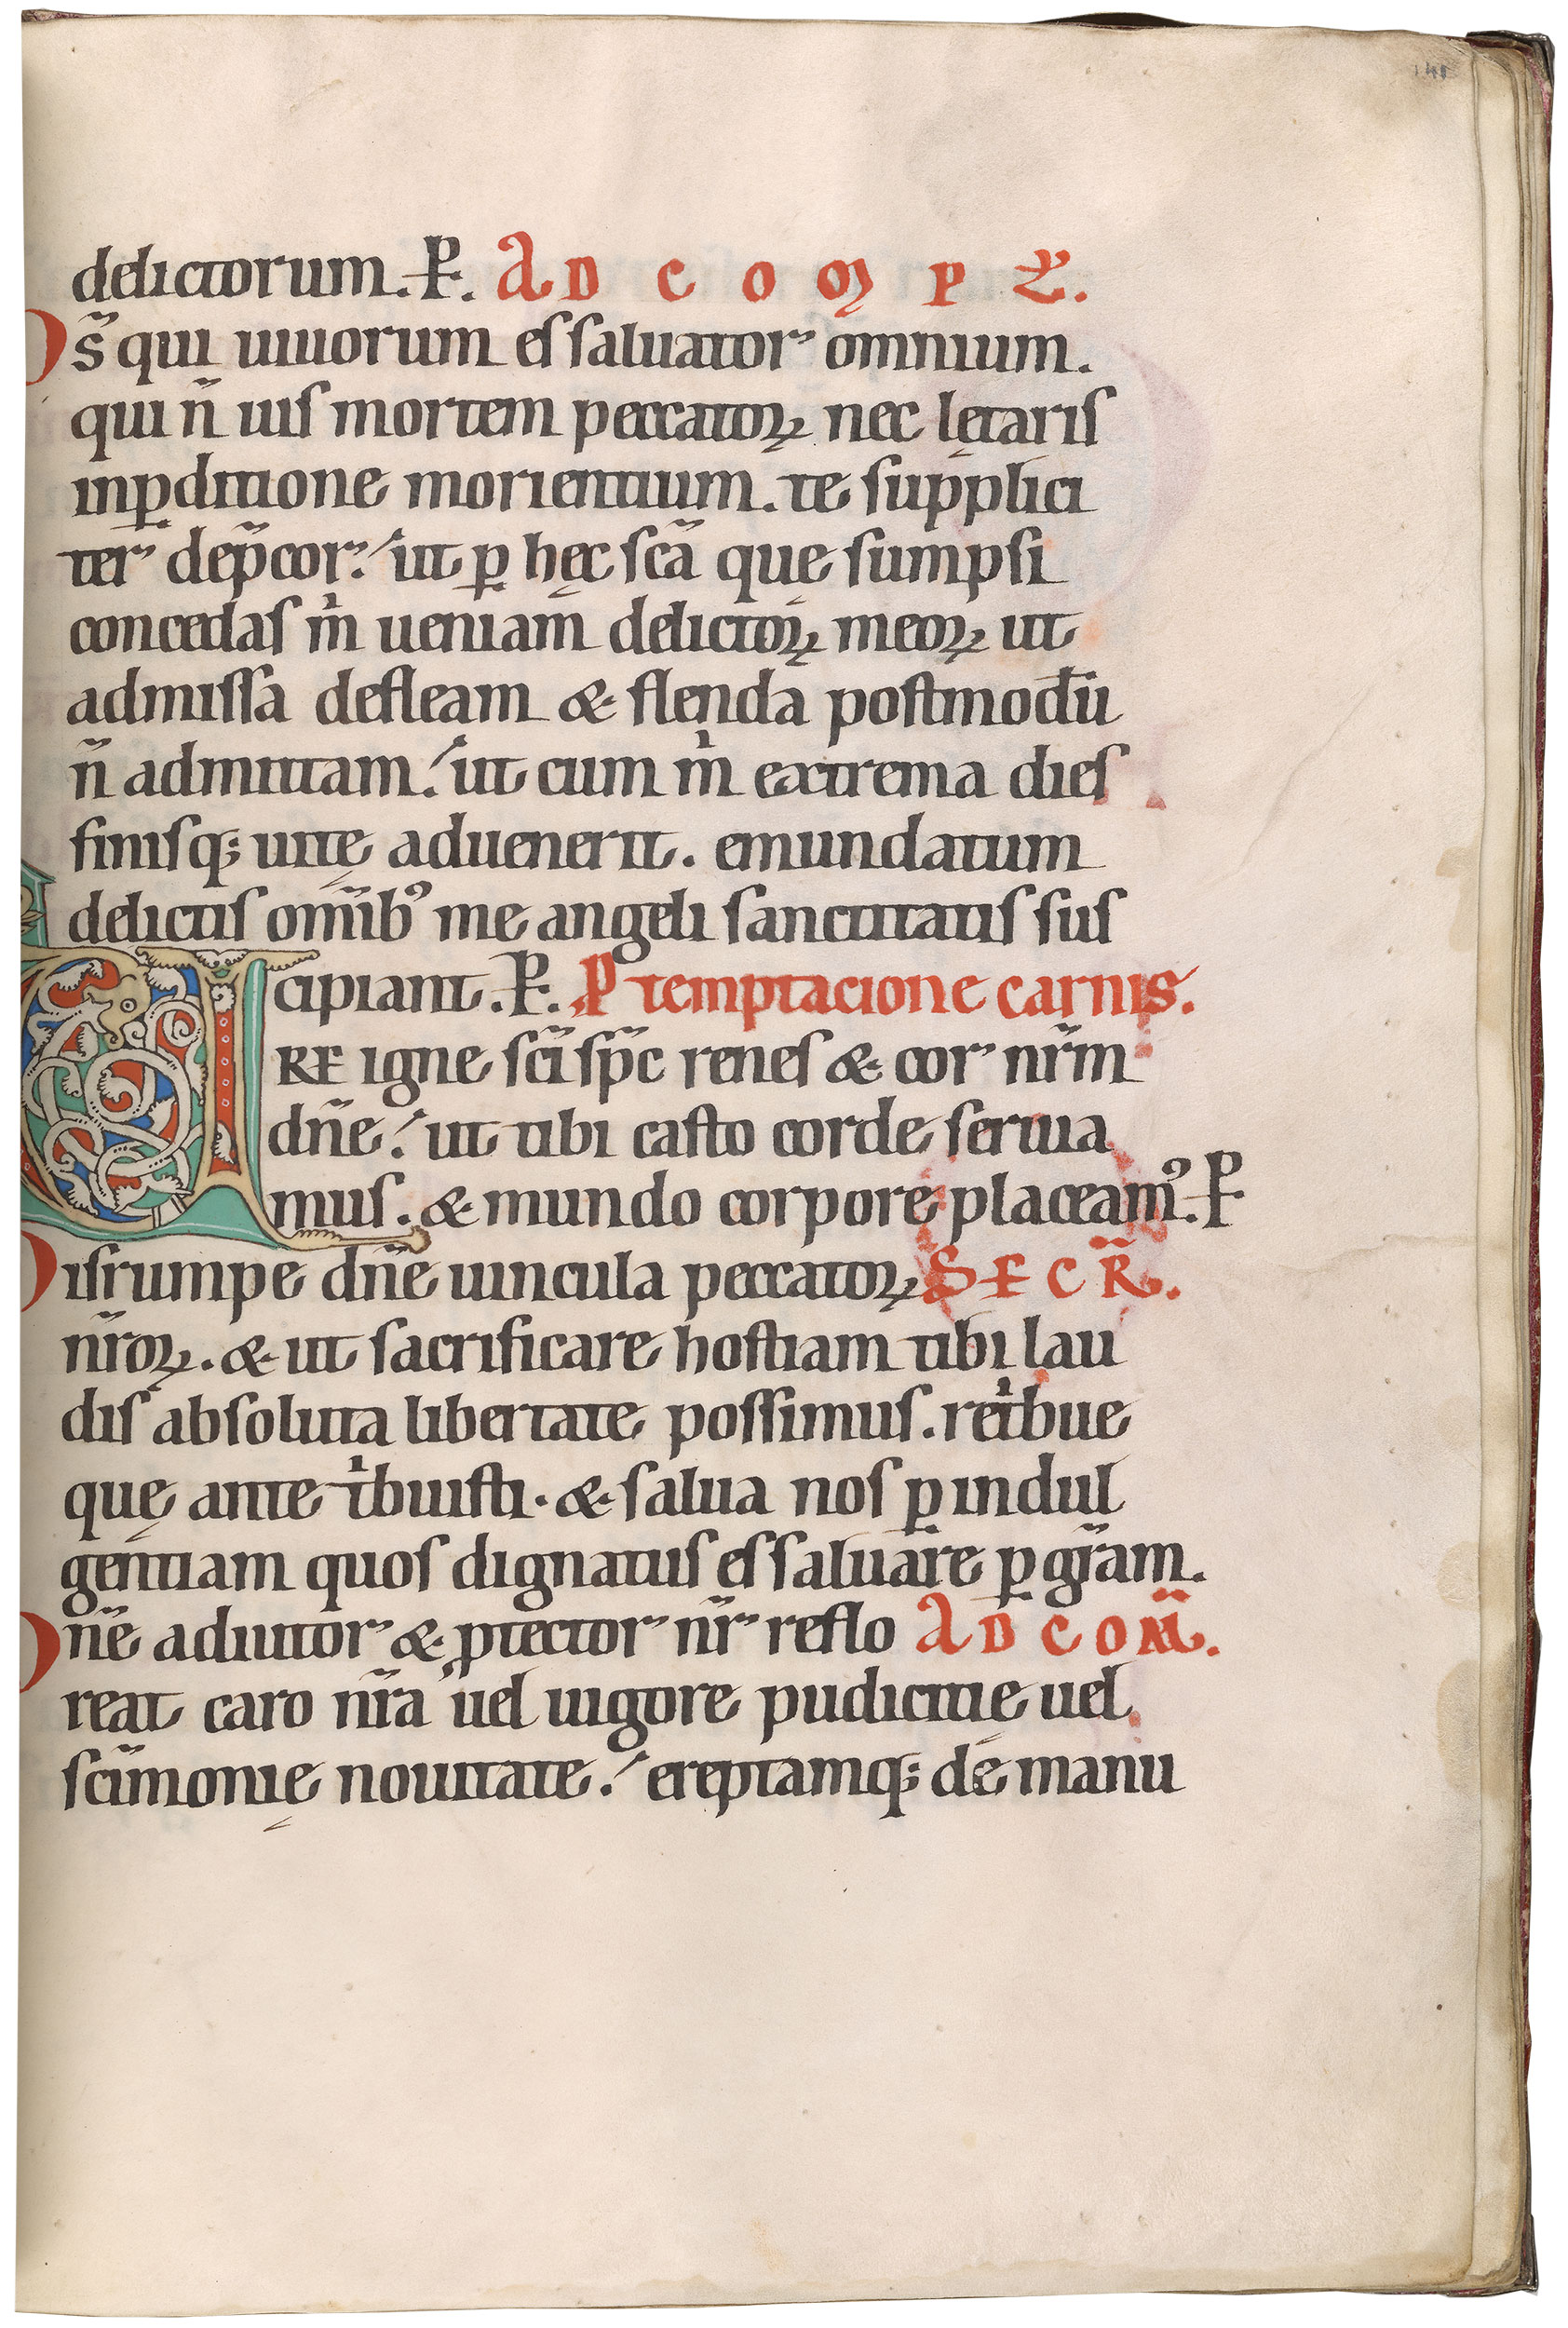 148
delictorum. P̶. AD COMPL̃.
Ds̃ qui uiuorum es saluator omnium.
qui ñ uis mortem peccatoꝝ nec lętaris
inꝑditione morientium. te supplici
ter dep̃cor. ut ꝑ hęc sc̃a quę sumpsi
concedas m̍ ueniam delictoꝝ meoꝝ ut
admissa defleam & flenda postmodū
ñ admittam. ut cum m̍ extrema dies
finisq; uitę aduenerit. emundatum
delictis om̃ib᾿ me angeli sanctitatis sus
cipiant. P̶. P temptacione carnis.
URE igne sc̃i sp̃c renes & cor nr̃m
dñe. ut tibi casto corde seruia
mus. & mundo corpore placeam᾿. P̶
Disrumpe dñe uincula peccatoꝝ SECR̃.
nr̃oꝝ. & ut sacrificare hostiam tibi lau
dis absoluta libertate possimus. ret̍bue
quę ante t̍buisti. & salua nos ꝑ indul
gentiam quos dignatus es saluare ꝑ gr̃am.
Dñe adiutor & ꝓtector nr̃ reflo AD COM̃.
reat caro nr̃a uel uigore pudicitie uel
sc̃imonię nouitate. ereptamq; de manu